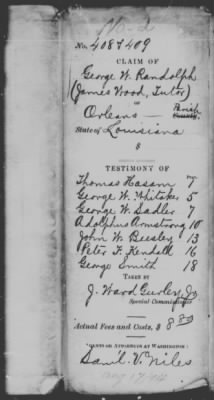 No. 4087409
CLAIM OF
George W. Randolph
(James Wood, Tutor)
OF
Orleans — Parish
County,
State of Louisiana
$
TESTIMONY OF
Page.
Thomas Hasam 7
George W. Whitaker 5
George W. Sadler 7
Adolphus Armstrong 10
John W. Beesley 13
Peter F. Kendall 16
George Smith 18
TAKEN BY
J. Ward Gurley, Jr
Special Commissioner
Actual Fees and Costs, $ 8.80
AGENTS OR ATTORNEYS AT WASHINGTON:
Saml. V. Niles